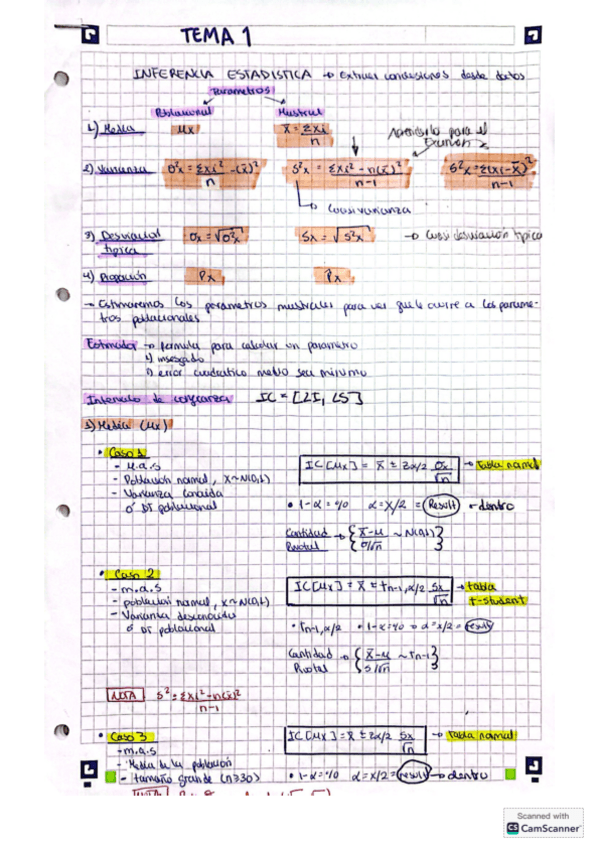 TEMA 1
INFERENCIA ESTADISTICA → Extraer conclusiones desde datos
Parametros
Poblacional Mustral
1) Media μx x̄ = Σxi / n Aprenderlo para el Examen
2) Varianza σ²x = Σxi² / n - (x̄)² S²x = Σxi² - n(x̄)² / n-1 S²x = Σ(xi - x̄)² / n-1
→ Cuasivarianza
3) Desviacion tipica σx = √σ²x Sx = √S²x → Cuasi desviación tipica
4) Proporción Px P̂x
- Estimaremos los parametros mustrales para ver que le ocurre a los parame-
tros poblacionales
Estimador → formula para calcular un parametro
1) insesgado
2) error cuadratico medio sea minimo
Intervalo de confianza IC = [LI, LS]
1) Media (μx)
• Caso 1
- m.a.s
- Población normal, X~N(0,1)
- Varianza conocida
ó DT poblacional
IC[μx] = x̄ ± zα/2 σx/√n → tabla normal
• 1-α = % α = x/2 = Result ← dentro
Cantidad Pivotal → { x̄-μ / σ/√n ~ N(0,1) }
• Caso 2
- m.a.s
- población normal, x~N(0,1)
- Varianza desconocida
ó DT poblacional
IC[μx] = x̄ ± tn-1,α/2 Sx/√n → tabla t-student
• tn-1,α/2 • 1-α = % → α = x/2 = result
Cantidad Pivotal → { x̄-μ / S/√n ~ tn-1 }
NOTA S² = Σxi² - n(x̄)² / n-1
• Caso 3
- m.a.s
- Media de la población
- tamaño grande (n≥30)
IC[μx] = x̄ ± zα/2 Sx/√n → tabla normal
• 1-α = % α = x/2 = result → dentro
NOTA
Scanned with
CS CamScanner